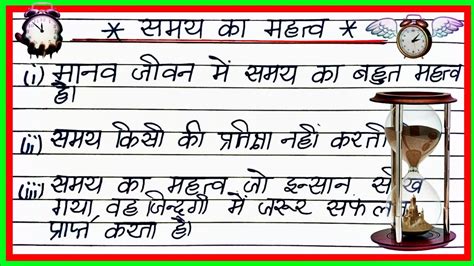 * समय का महत्व *
(i) मानव जीवन में समय का बहुत महत्व
है।
(ii) समय किसी की प्रतिक्षा नहीं करती
(iii) समय का महत्व जो इन्सान सीख
गया, वह जिन्दगी में जरूर सफलता
प्राप्त करता है।